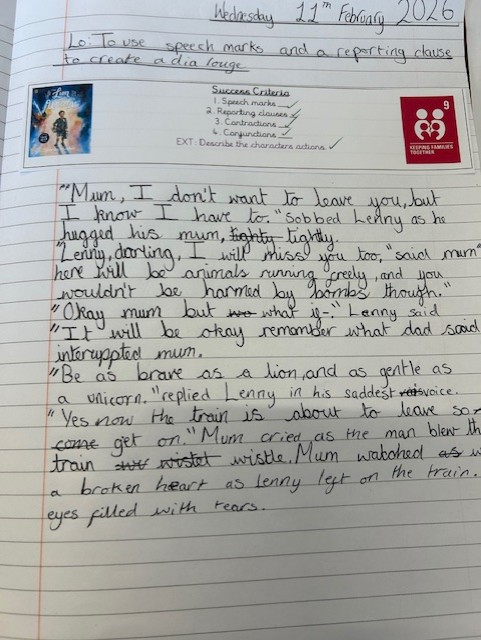 Wednesday 11th February 2026
Lo: To use speech marks and a reporting clause
to create a dia louge
Success Criteria
1. Speech marks
2. Reporting clauses
3. Contractions
4. Conjunctions
EXT: Describe the characters actions
9
KEEPING FAMILIES
TOGETHER
"Mum, I don't want to leave you, but
I know I have to." Sobbed Lenny as he
hugged his mum, tighty tightly.
"Lenny, darling, I will miss you too," said mum"
here will be animals running freely, and you
wouldn't be harmed by bombs though."
"Okay mum but what if-" Lenny said
"It will be okay remember what dad said
interuppted mum.
"Be as brave as a lion, and as gentle as
a unicorn." replied Lenny in his saddest voice.
"Yes now the train is about to leave so
come get on." Mum cried as the man blew th
train wistel wistle. Mum watched as w
a broken heart as Lenny left on the train.
eyes filled with tears.